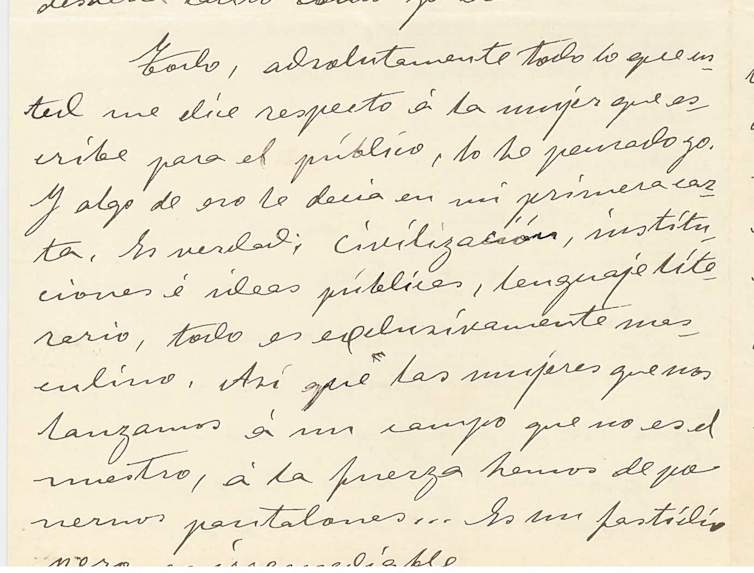 Todo, absolutamente todo lo que us-
ted me dice respecto á la mujer que es-
cribe para el público, lo he pensado yo.
Y algo de eso le decia en mi primera car-
ta. Es verdad; civilización, institu-
ciones é ideas públicas, lenguaje lite-
rario, todo es exclusivamente mas-
culino. Así que las mujeres que nos
lanzamos á un campo que no es el
nuestro, á la fuerza hemos de po-
nernos pantalones... Es un fastidio
pero es irremediable